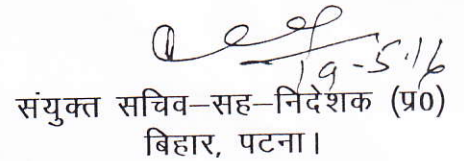 19-5-16
संयुक्त सचिव–सह–निदेशक (प्र0)
बिहार, पटना।